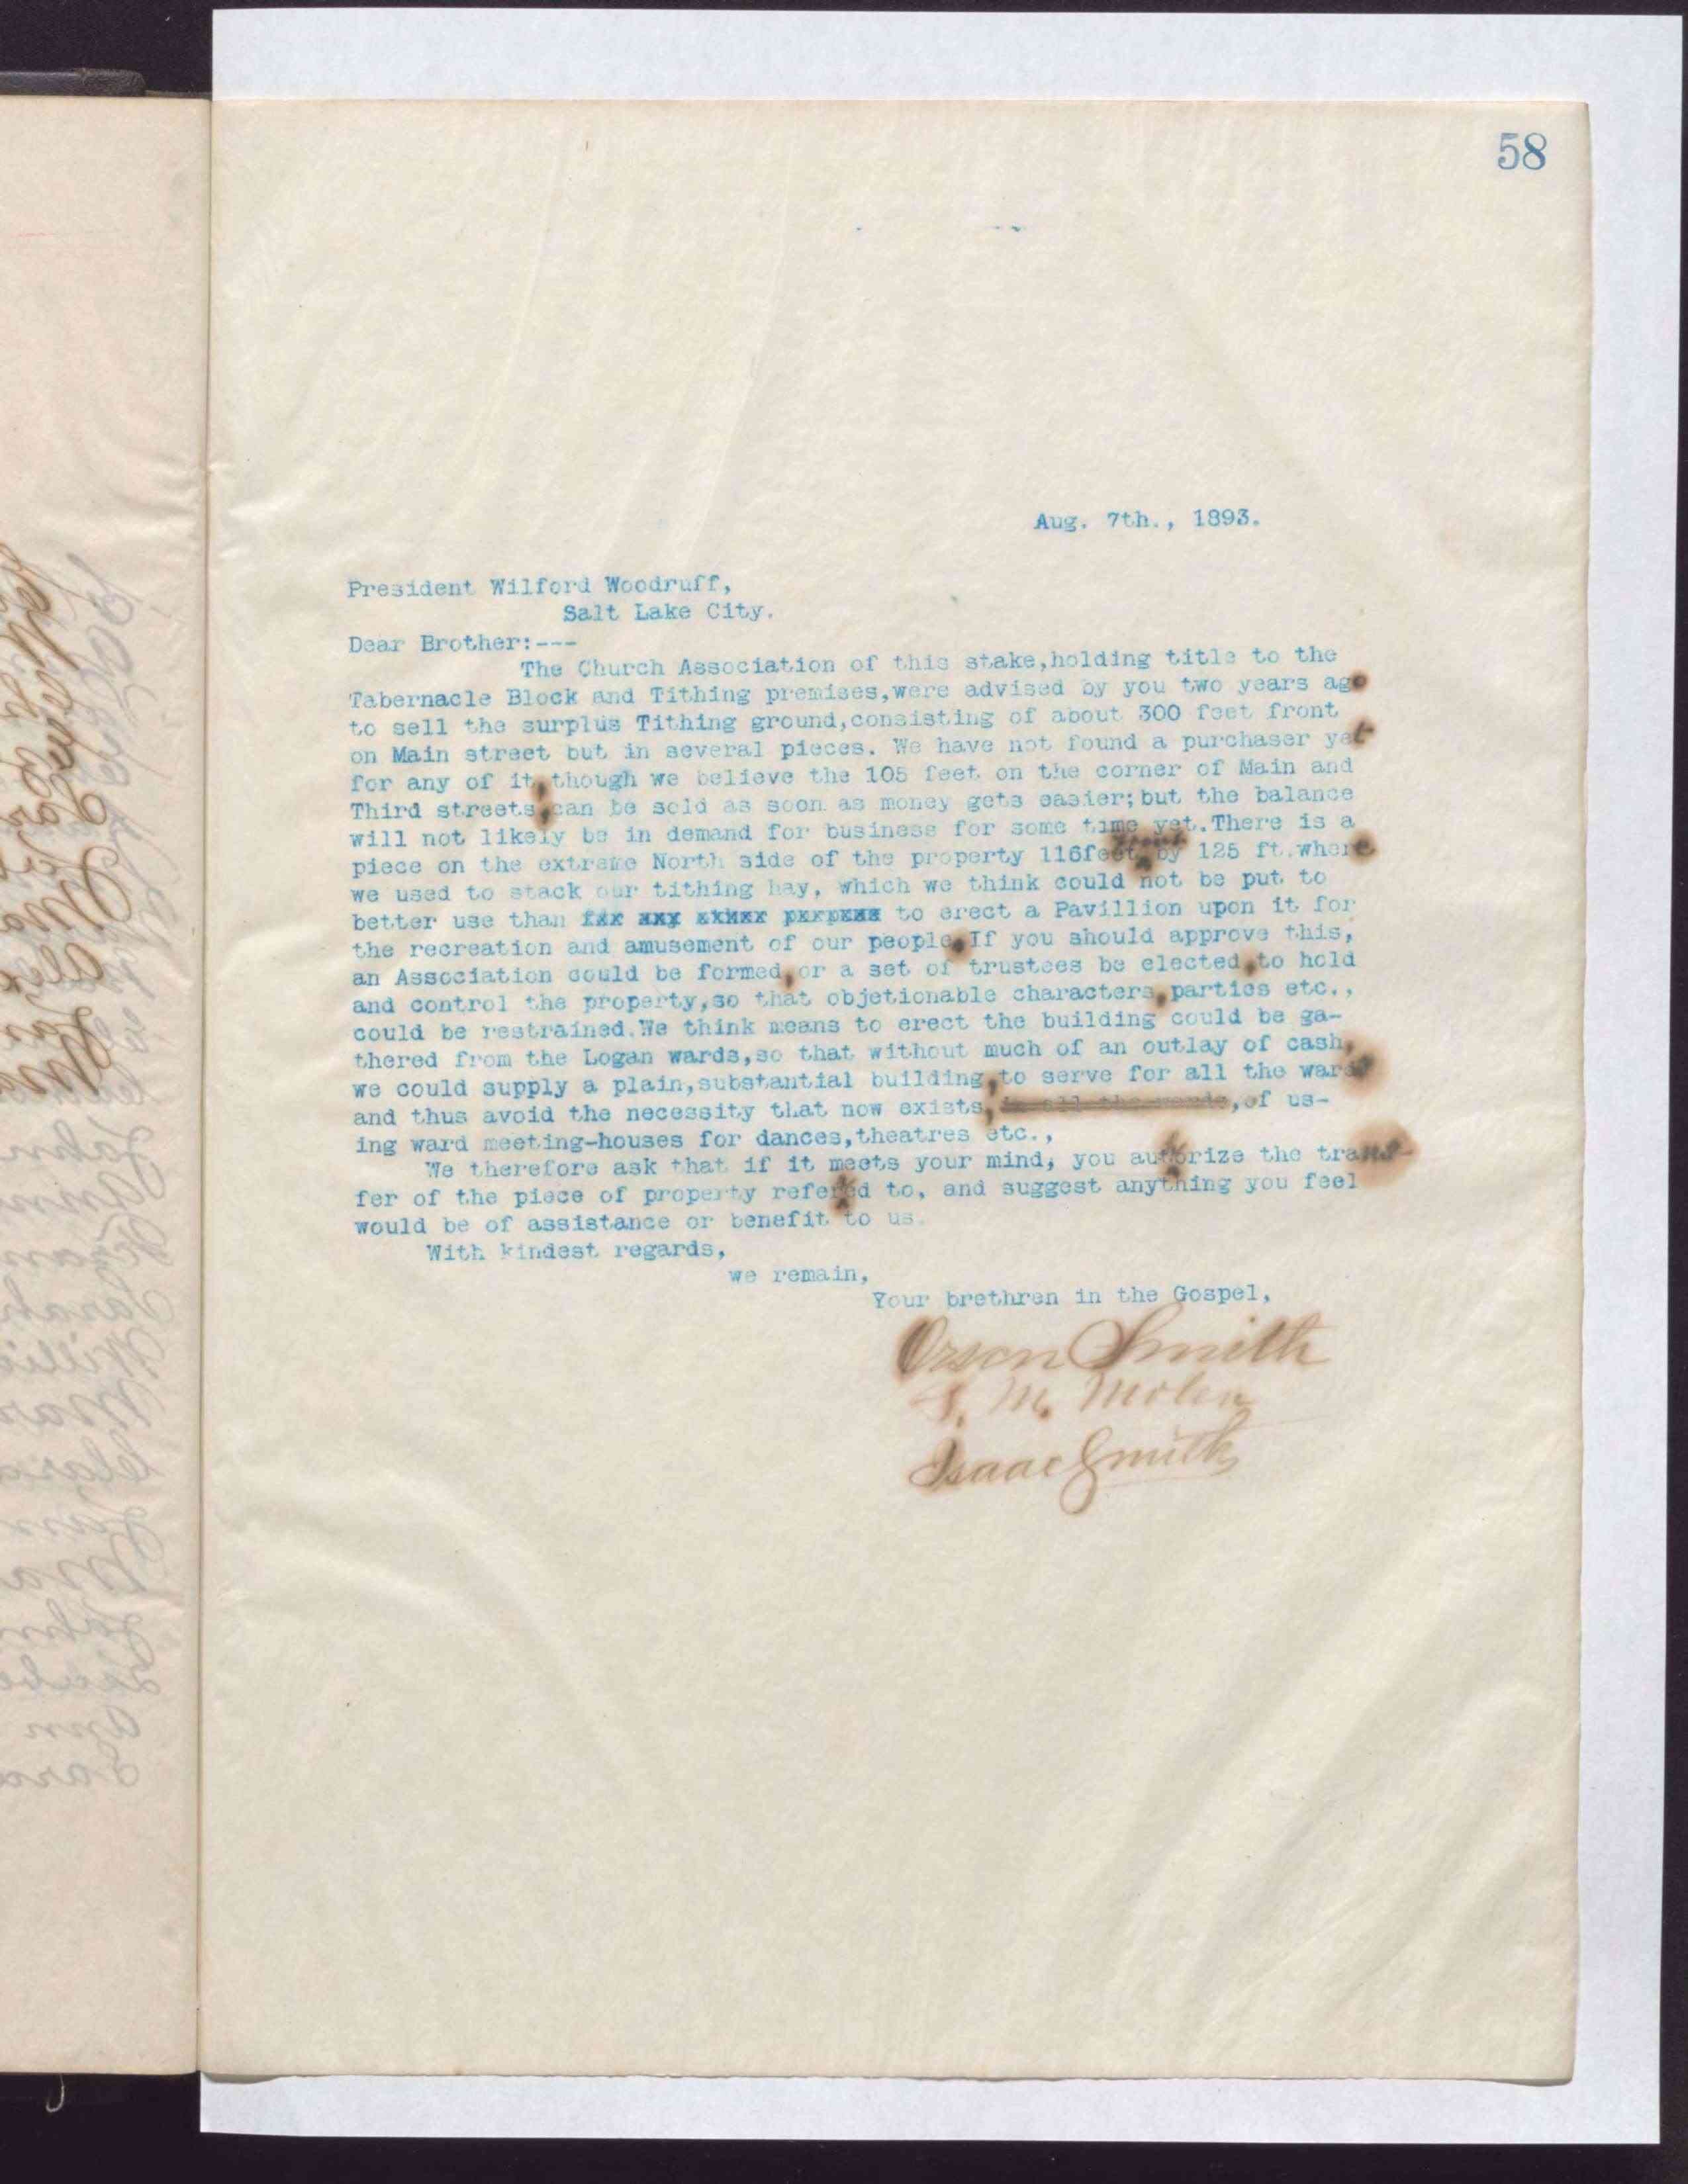 58
Aug. 7th., 1893.
President Wilford Woodruff,
Salt Lake City.
Dear Brother:---
The Church Association of this stake,holding title to the
Tabernacle Block and Tithing premises,were advised by you two years ago
to sell the surplus Tithing ground,consisting of about 300 feet front
on Main street but in several pieces. We have not found a purchaser yet
for any of it,though we believe the 105 feet on the corner of Main and
Third streets,can be sold as soon as money gets easier;but the balance
will not likely be in demand for business for some time yet.There is a
piece on the extreme North side of the property 116feet by 125 ft.where
we used to stack our tithing hay, which we think could not be put to
better use than to erect a Pavillion upon it for
the recreation and amusement of our people.If you should approve this,
an Association could be formed,or a set of trustees be elected,to hold
and control the property,so that objetionable characters,parties etc.,
could be restrained.We think means to erect the building could be ga-
thered from the Logan wards,so that without much of an outlay of cash,
we could supply a plain,substantial building,to serve for all the wards
and thus avoid the necessity that now exists, in all the wards,of us-
ing ward meeting-houses for dances,theatres etc.,
We therefore ask that if it meets your mind, you authorize the trans-
fer of the piece of property refered to, and suggest anything you feel
would be of assistance or benefit to us.
With kindest regards,
we remain,
Your brethren in the Gospel,
Orson Smith
S. M. Molen
Isaac Smith